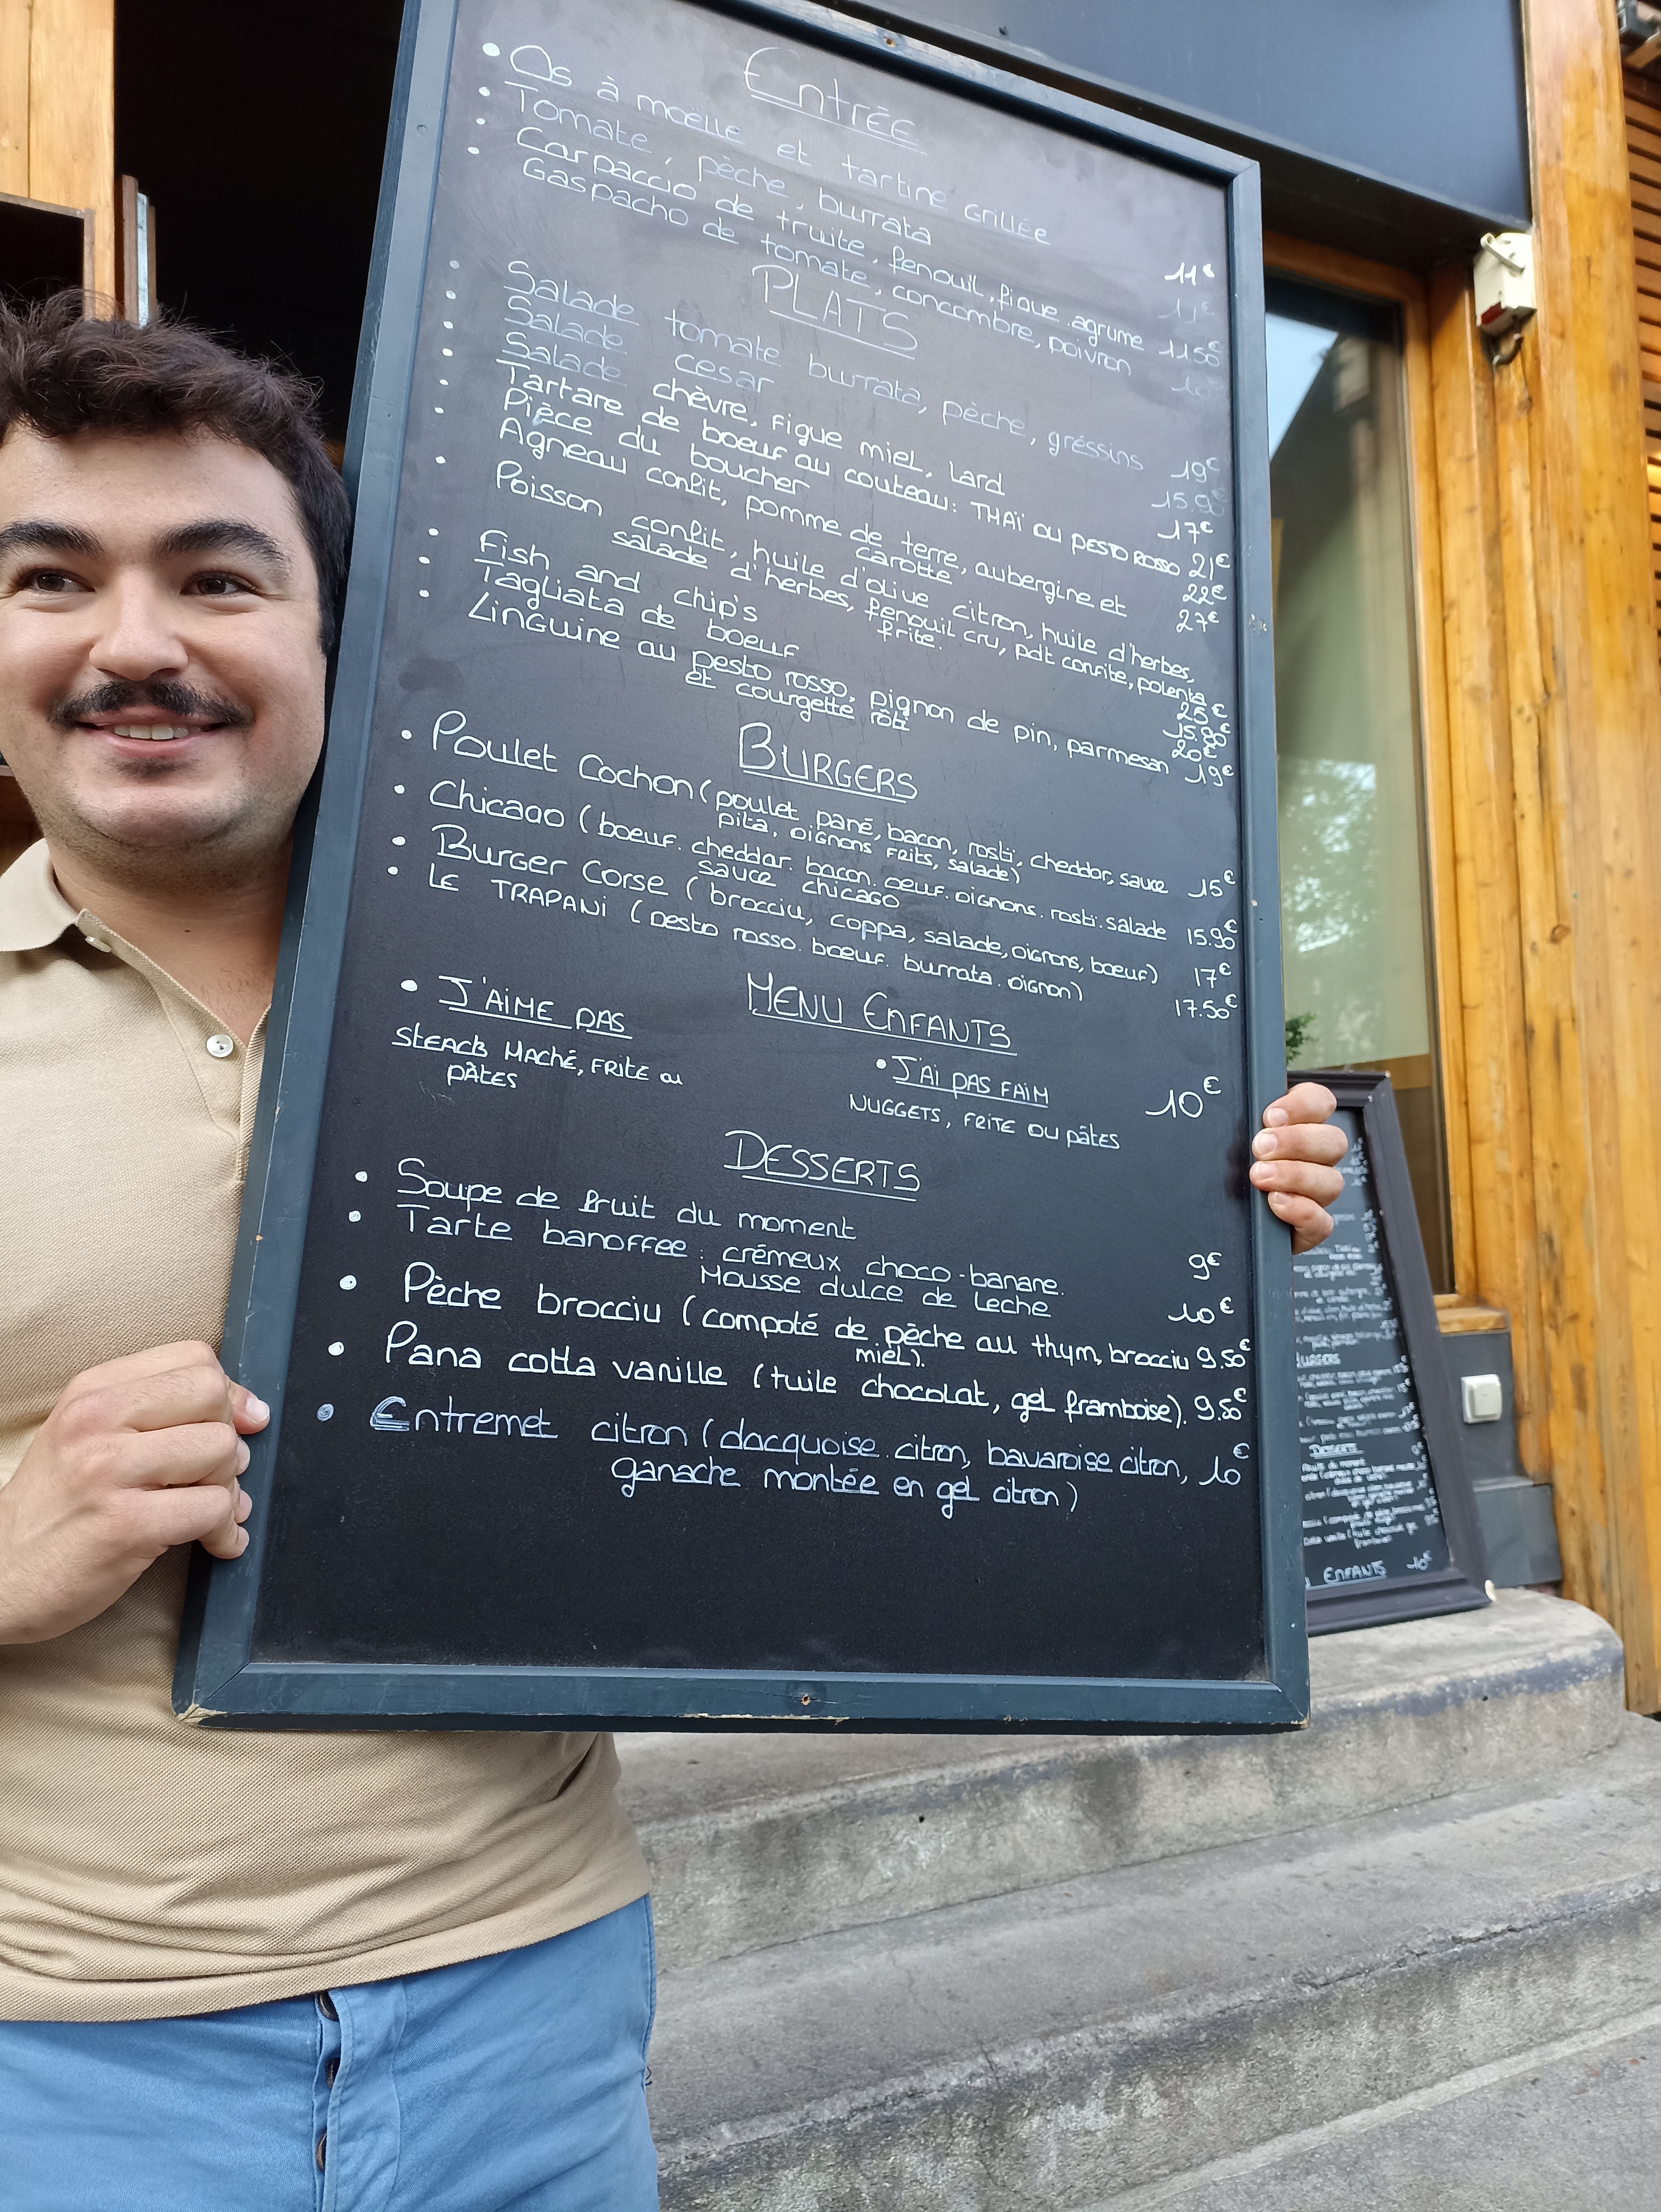 Entrée
• Os à moelle et tartine grillée 11€
• Tomate, pèche, burrata 11€
• Carpaccio de truite, fenouil, figue, agrume 11.50€
• Gaspacho de tomate, concombre, poivron 10€
PLATS
• Salade tomate burrata, pèche, gréssins 19€
• Salade cesar 15.90€
• Salade chèvre, figue miel, lard 17€
• Tartare de boeuf au couteau: THAÏ ou PESTO ROSSO 21€
• Pièce du boucher 22€
• Agneau confit, pomme de terre, aubergine et 27€
carotte
• Poisson confit, huile d'olive citron, huile d'herbes,
salade d'herbes, fenouil cru, pdt confite, polenta
frite. 25€
• Fish and chip's 15.90€
• Tagliata de boeuf 20€
• Linguine au pesto rosso, pignon de pin, parmesan 19€
et courgette rôti
BURGERS
• Poulet Cochon (poulet pané, bacon, rosti, cheddar, sauce 15€
pita, oignons frits, salade)
• Chicago (boeuf. cheddar. bacon. oeuf. oignons. rosti. salade 15.90€
sauce chicago
• Burger Corse (brocciu, coppa, salade, oignons, boeuf) 17€
• LE TRAPANi (pesto rosso. boeuf. burrata. oignon) 17.50€
MENU ENFANTS
• J'AiME PAS
STEACK HACHÉ, FRITE ou
PÂTES
• J'Ai PAS FAiM 10€
NUGGETS, FRITE OU PÂTES
DESSERTS
• Soupe de fruit du moment 9€
• Tarte banoffee: crémeux choco-banane.
Mousse dulce de leche 10€
• Pèche brocciu (compoté de pèche au thym, brocciu 9.50€
miel).
• Pana cotta vanille (tuile chocolat, gel framboise). 9.50€
• Entremet citron (dacquoise citron, bavaroise citron, 10€
ganache montée en gel citron)
BURGERS
DESSERTS
ENFANTS 10€